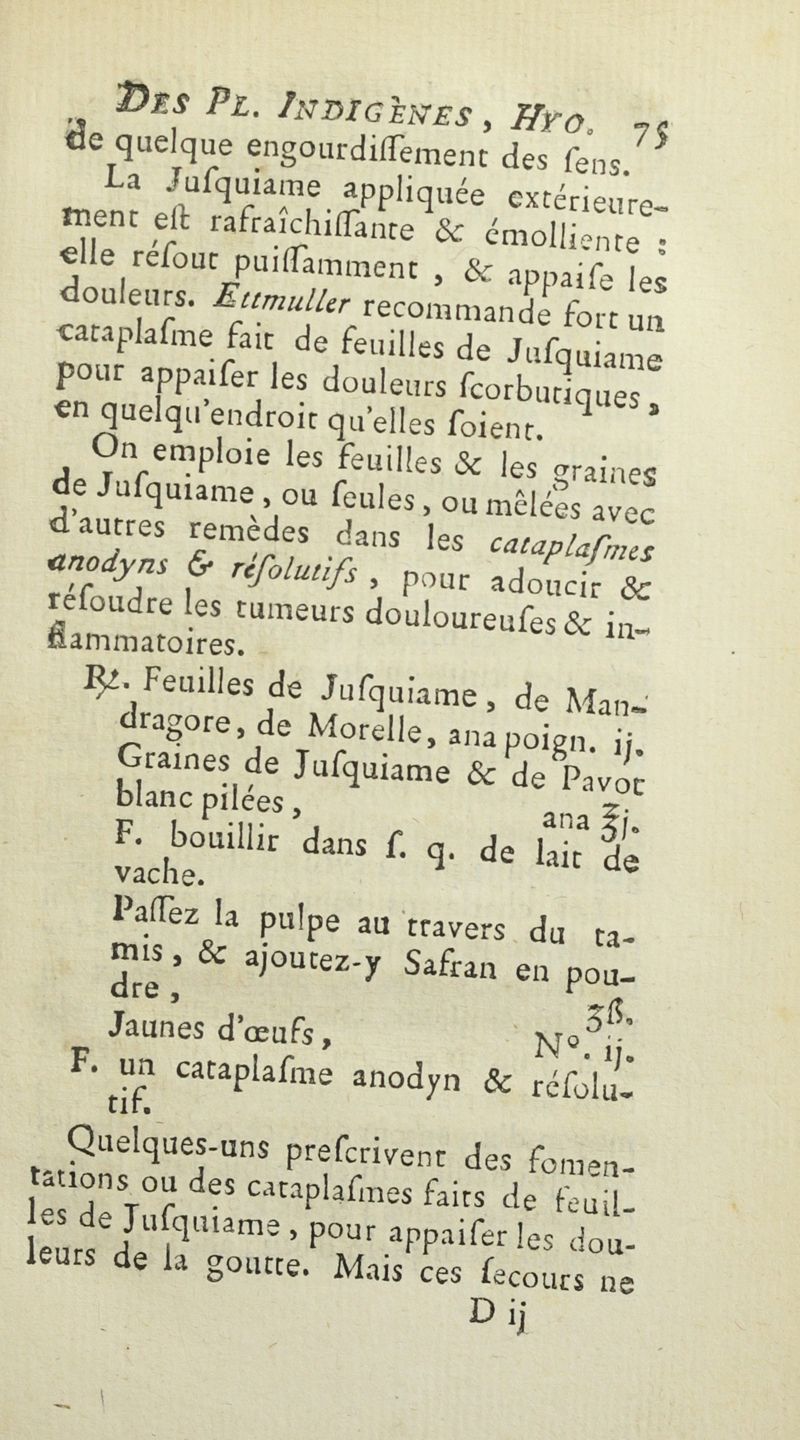 DES PL. INDIGÈNES, HYO. 75
de quelque engourdiſſement des ſens.
La Juſquiame appliquée extérieure-
ment eſt rafraîchiſſante & émolliente :
elle réſout puiſſamment, & appaiſe les
douleurs. Ettmuller recommande fort un
cataplaſme fait de feuilles de Juſquiame
pour appaiſer les douleurs ſcorbutiques,
en quelqu'endroit qu'elles ſoient.
On emploie les feuilles & les graines
de Juſquiame, ou ſeules, ou mêlées avec
d'autres remèdes dans les cataplaſmes
anodyns & réſolutifs, pour adoucir &
réſoudre les tumeurs douloureuſes & in-
flammatoires.
℞. Feuilles de Juſquiame, de Man-
dragore, de Morelle, ana poign. ij.
Graines de Juſquiame & de Pavot
blanc pilées, ana ℥j.
F. bouillir dans ſ. q. de lait de
vache.
Paſſez la pulpe au travers du ta-
mis, & ajoutez-y Safran en pou-
dre, ʒß.
Jaunes d'œufs, N°. ij.
F. un cataplaſme anodyn & réſolu-
tif.
Quelques-uns preſcrivent des fomen-
tations ou des cataplaſmes faits de feuil-
les de Juſquiame, pour appaiſer les dou-
leurs de la goutte. Mais ces ſecours ne
D ij